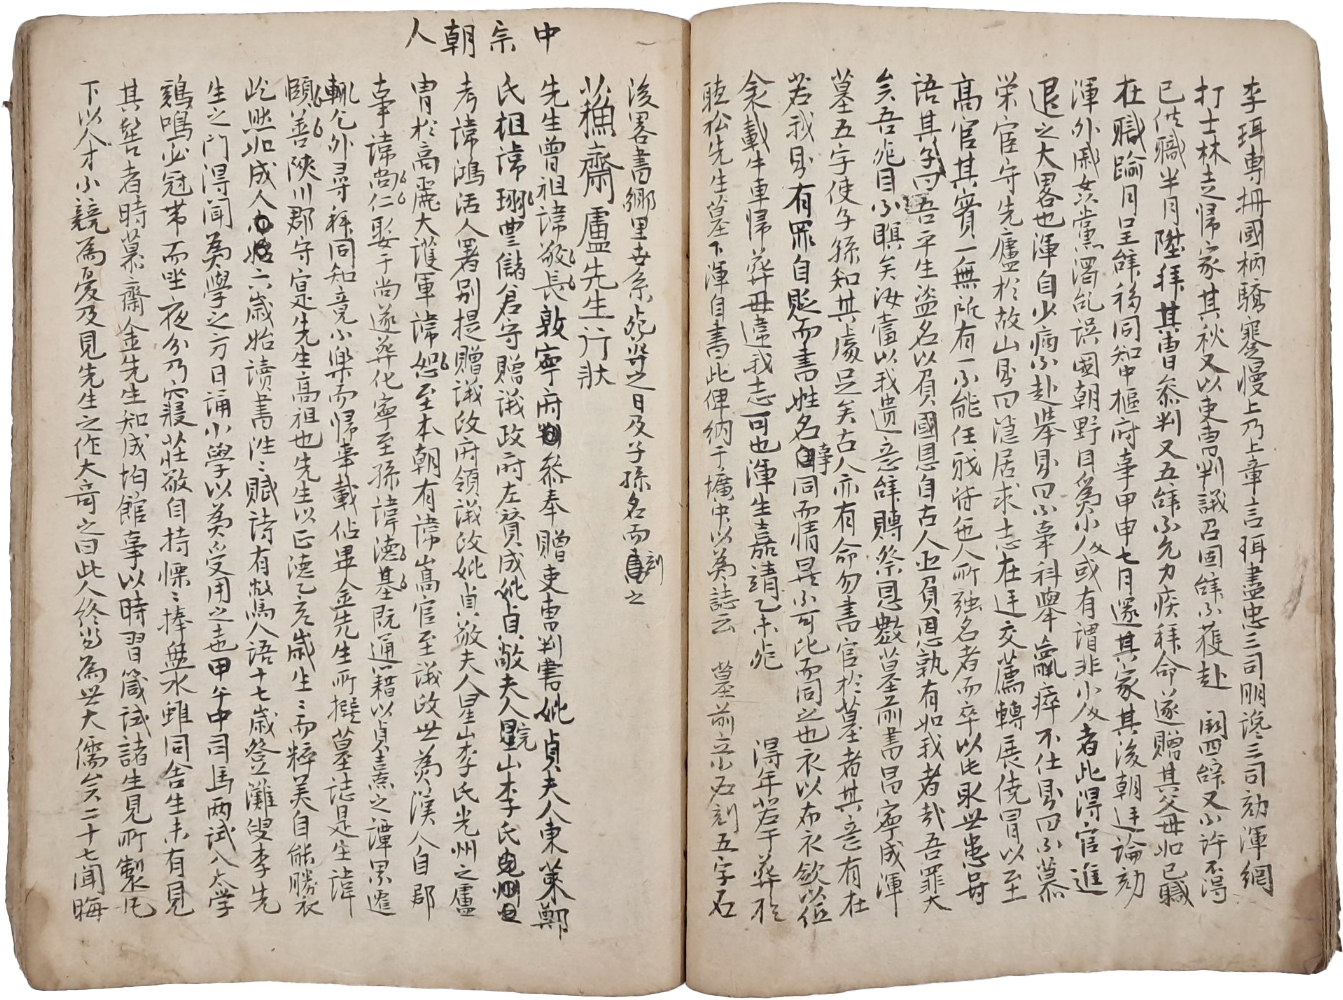 李珥專擅國柄驕蹇慢上乃上章言珥盡忠三司朋讒三司劾渾網
打士林去歸家其秋又以吏曹判議召固辞不獲赴 闕四辞又不許不得
已供職半月陞拜其曹叅判又五辞不允力疾拜命遂贈其父母如已職
在職踰月呈辞移同知中樞府事甲申七月還其家其後朝廷論劾
渾外戚與黨濁乱誤國朝野目爲小人或有謂非小人者此得官進
退之大畧也渾自少病不赴擧則曰不事科擧羸瘁不仕則曰不慕
榮宦守先廬於故山則曰隱居求志在廷交薦轉展僥冒以至
高官其實一無所有一不能任職特包人所強名者而卒以此取世患号
語其子曰吾平生盗名以負國恩自古人臣負恩孰有如我者哉吾罪大
矣吾死目不瞑矣汝當以我遺意辞賻祭恩數墓前書昌寧成渾
墓五字使子孫知其處足矣古人亦有命勿書官於墓者其意有在
若我則有罪自貶而書姓名事同而情異不可比而同之也衣以布衣歛以
衾載牛車歸葬毋違我志可也渾生嘉靖乙未死 得年若干葬於
聽松先生墓下渾自書此俾納于壙中以爲誌云 墓前立小石刻五字石
後畧書鄕里世系死葬之日及子孫名而刻之
中宗朝人
蘓齋盧先生行狀
先生曾祖諱敬長敦寧府叅奉贈吏曹判書妣貞夫人東萊鄭
氏祖諱珚豊儲倉守贈議政府左賛成妣貞敬夫人星山李氏
考諱鴻活人署別提贈議政府領議政妣貞敬夫人星山李氏光州之盧
冑於高麗大護軍諱恕至本朝有諱嵩官至議政世爲漢人自郡
事諱尚仁娶于尚遂葬化寧至孫諱德基既通籍以貞熹之譚累遷
輒乞外尋拜同知竟不樂而歸事載佔畢金先生所撰墓誌是生諱
頤善陜川郡守寔先生高祖也先生以正德乙亥歲生生而粹美自能勝衣
屹然如成人六歲始讀書泩泩賦詩有驚人語十七歲登灘叟李先
生之門得聞爲學之方日誦小學以爲受用之地甲午中司馬兩試入太学
鷄鳴必冠帶而坐夜分乃寢莊敬自持慄慄捧盤水雖同舍生未有見
其髽者時慕齋金先生知成均館事以時習箴試諸生見所製已
下以人才小競爲憂及見先生之作大奇之曰此人終當爲世大儒矣二十七聞晦